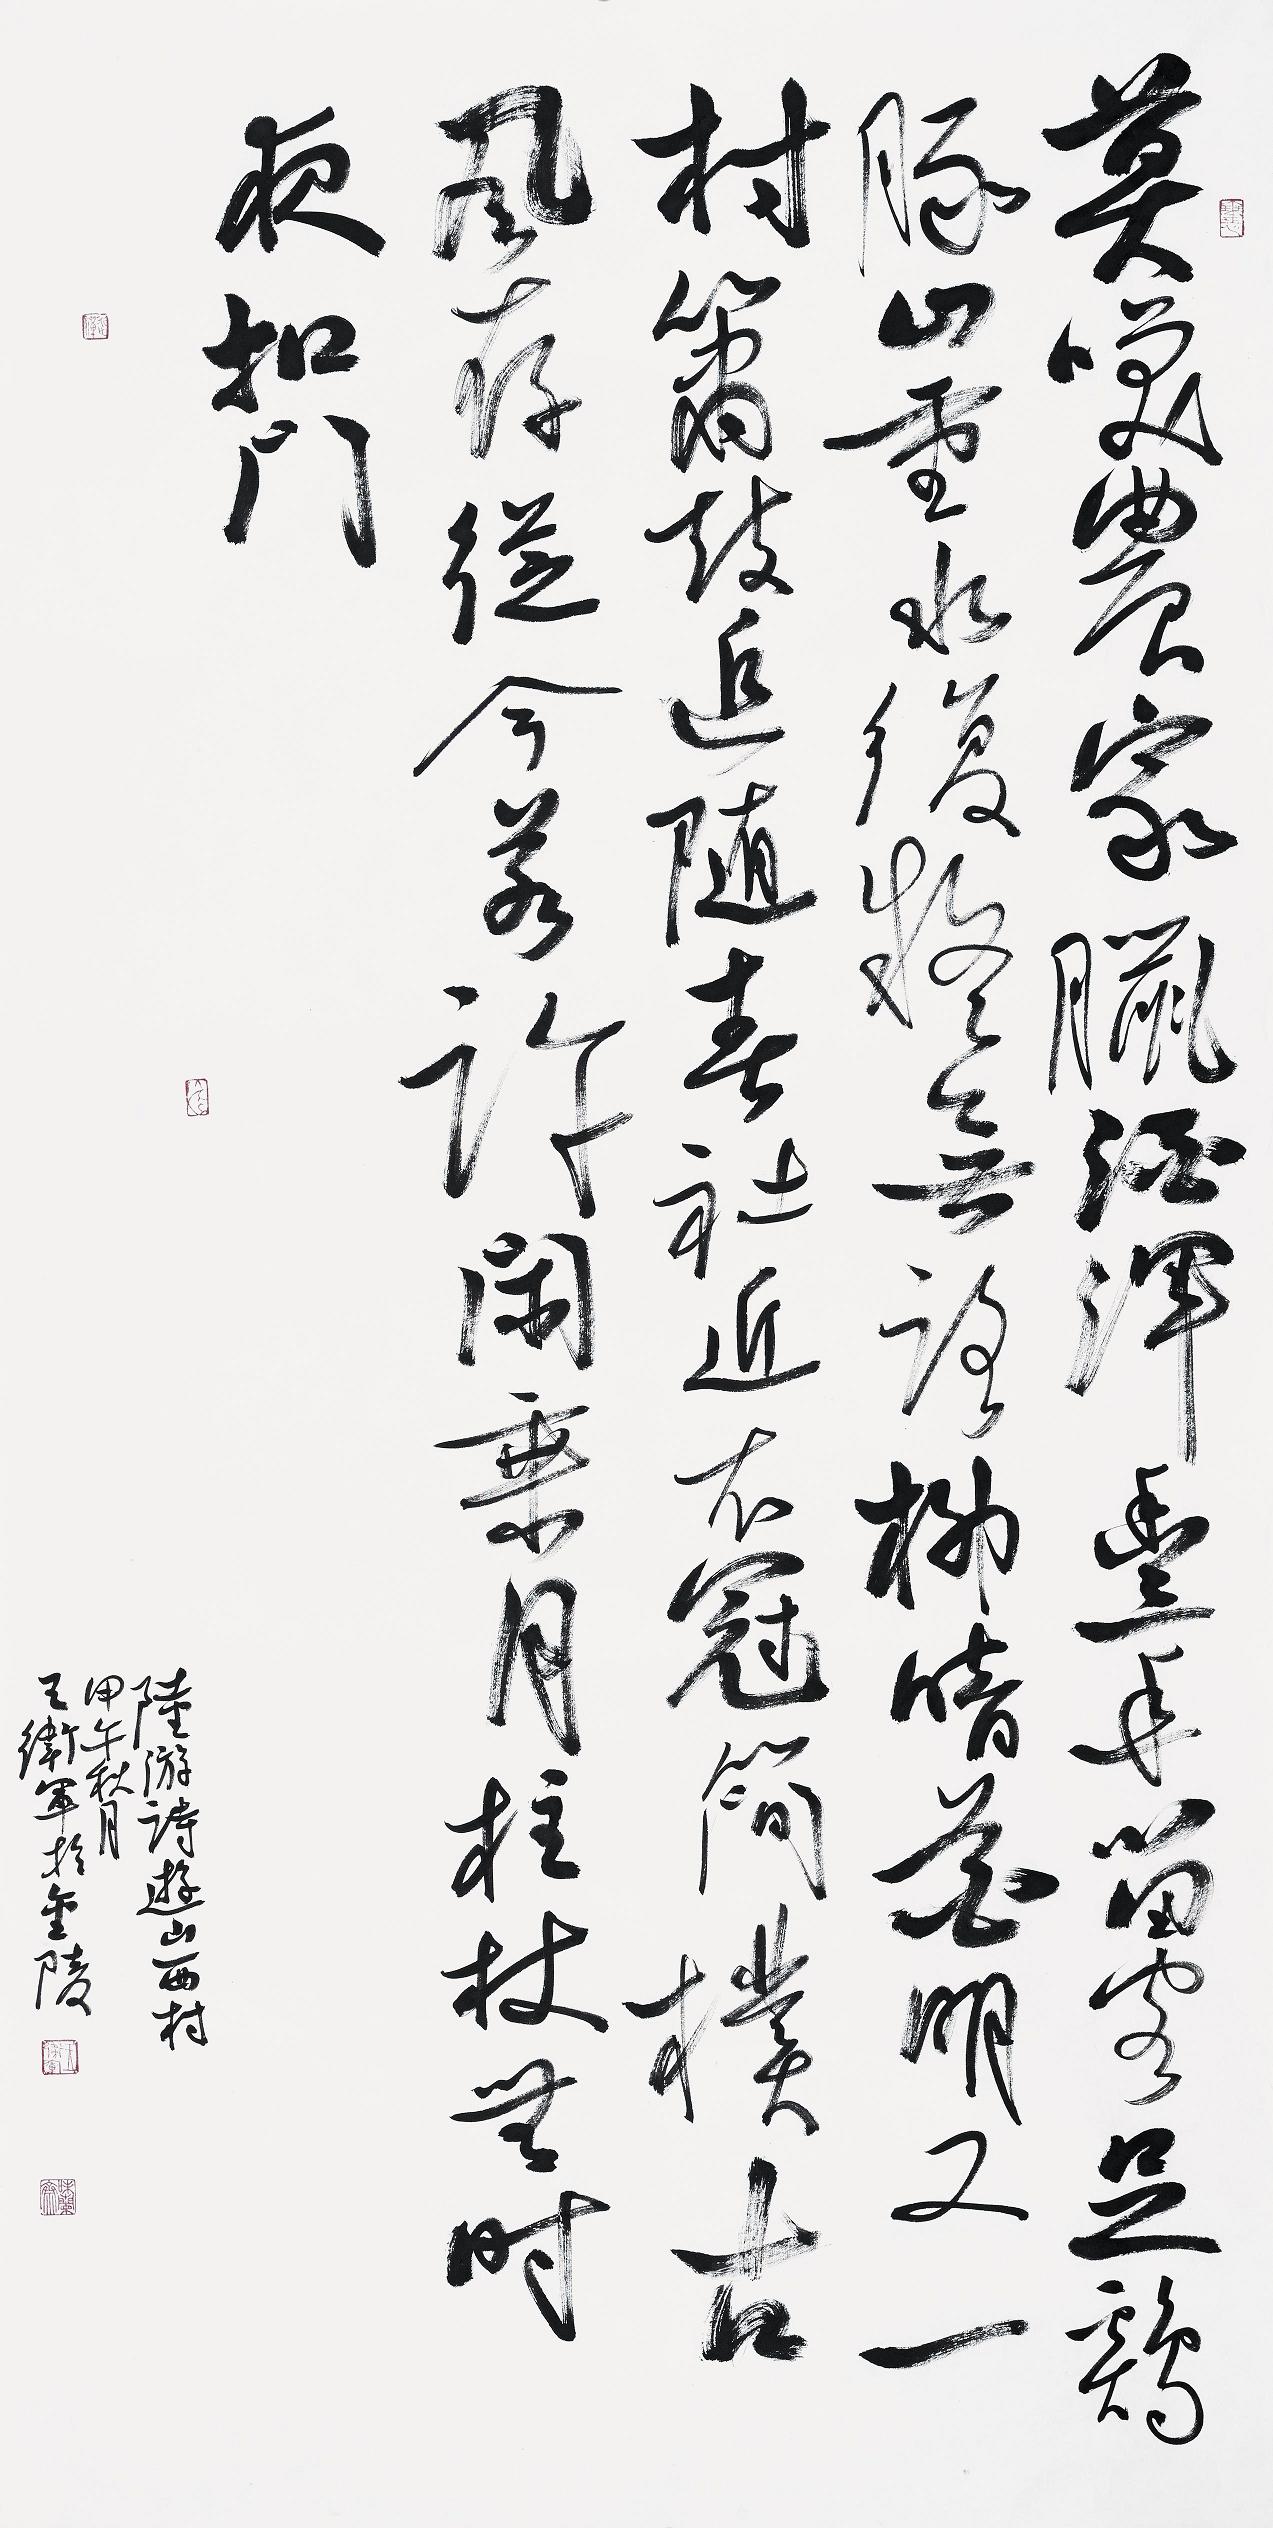 莫笑農家臘酒渾豐年留客足鷄
豚山重水復疑無路柳暗花明又一
村簫鼓追随春社近衣冠簡樸古
風存從今若許閑乗月柱杖無时
夜扣门
陸游詩遊山西村
甲午秋月
王衛軍於金陵